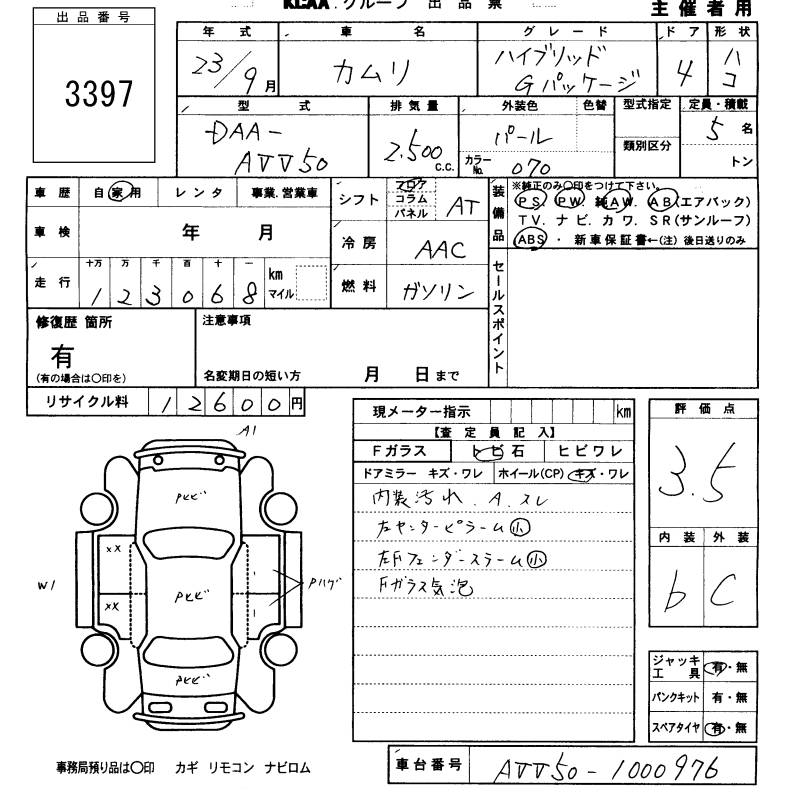 KCAA グループ 出品票
主催者用
出品番号
3397
年式 車名 グレード ドア 形状
23/9月 カムリ ハイブリッド Gパッケージ 4 ハコ
型式 排気量 外装色 色替 型式指定 定員・積載
DAA-AVV50 2,500 c.c. パール カラーNo. 070 類別区分 5名 トン
車歴 自家用 レンタ 事業.営業車
車検 年 月
走行 十万 万 千 百 十 一
123068 km マイル
シフト フロア コラム パネル AT
冷房 AAC
燃料 ガソリン
装備品
※純正のみ〇印をつけて下さい。
PS. PW. 純AW. AB(エアバック)
TV. ナビ. カワ. SR(サンルーフ)
ABS ・ 新車保証書←(注)後日送りのみ
セールスポイント
修復歴 箇所
有
(有の場合は〇印を)
注意事項
名変期日の短い方 月 日まで
リサイクル料 12600円
現メーター指示 km
【査定員記入】
Fガラス トビ石 ヒビワレ
ドアミラー キズ・ワレ ホイール(CP) キズ・ワレ
内装汚れ、A.スレ
左センターピラーム小
左Fフェンダースラーム小
Fガラス気泡
評価点
3.5
内装 外装
b C
ジャッキ工具 有・無
パンクキット 有・無
スペアタイヤ 有・無
A1
Pビビ
XX
W1
XX
PビビPハゲ
Pビビ
事務局預り品は〇印 カギ リモコン ナビロム
車台番号 AVV50-1000976